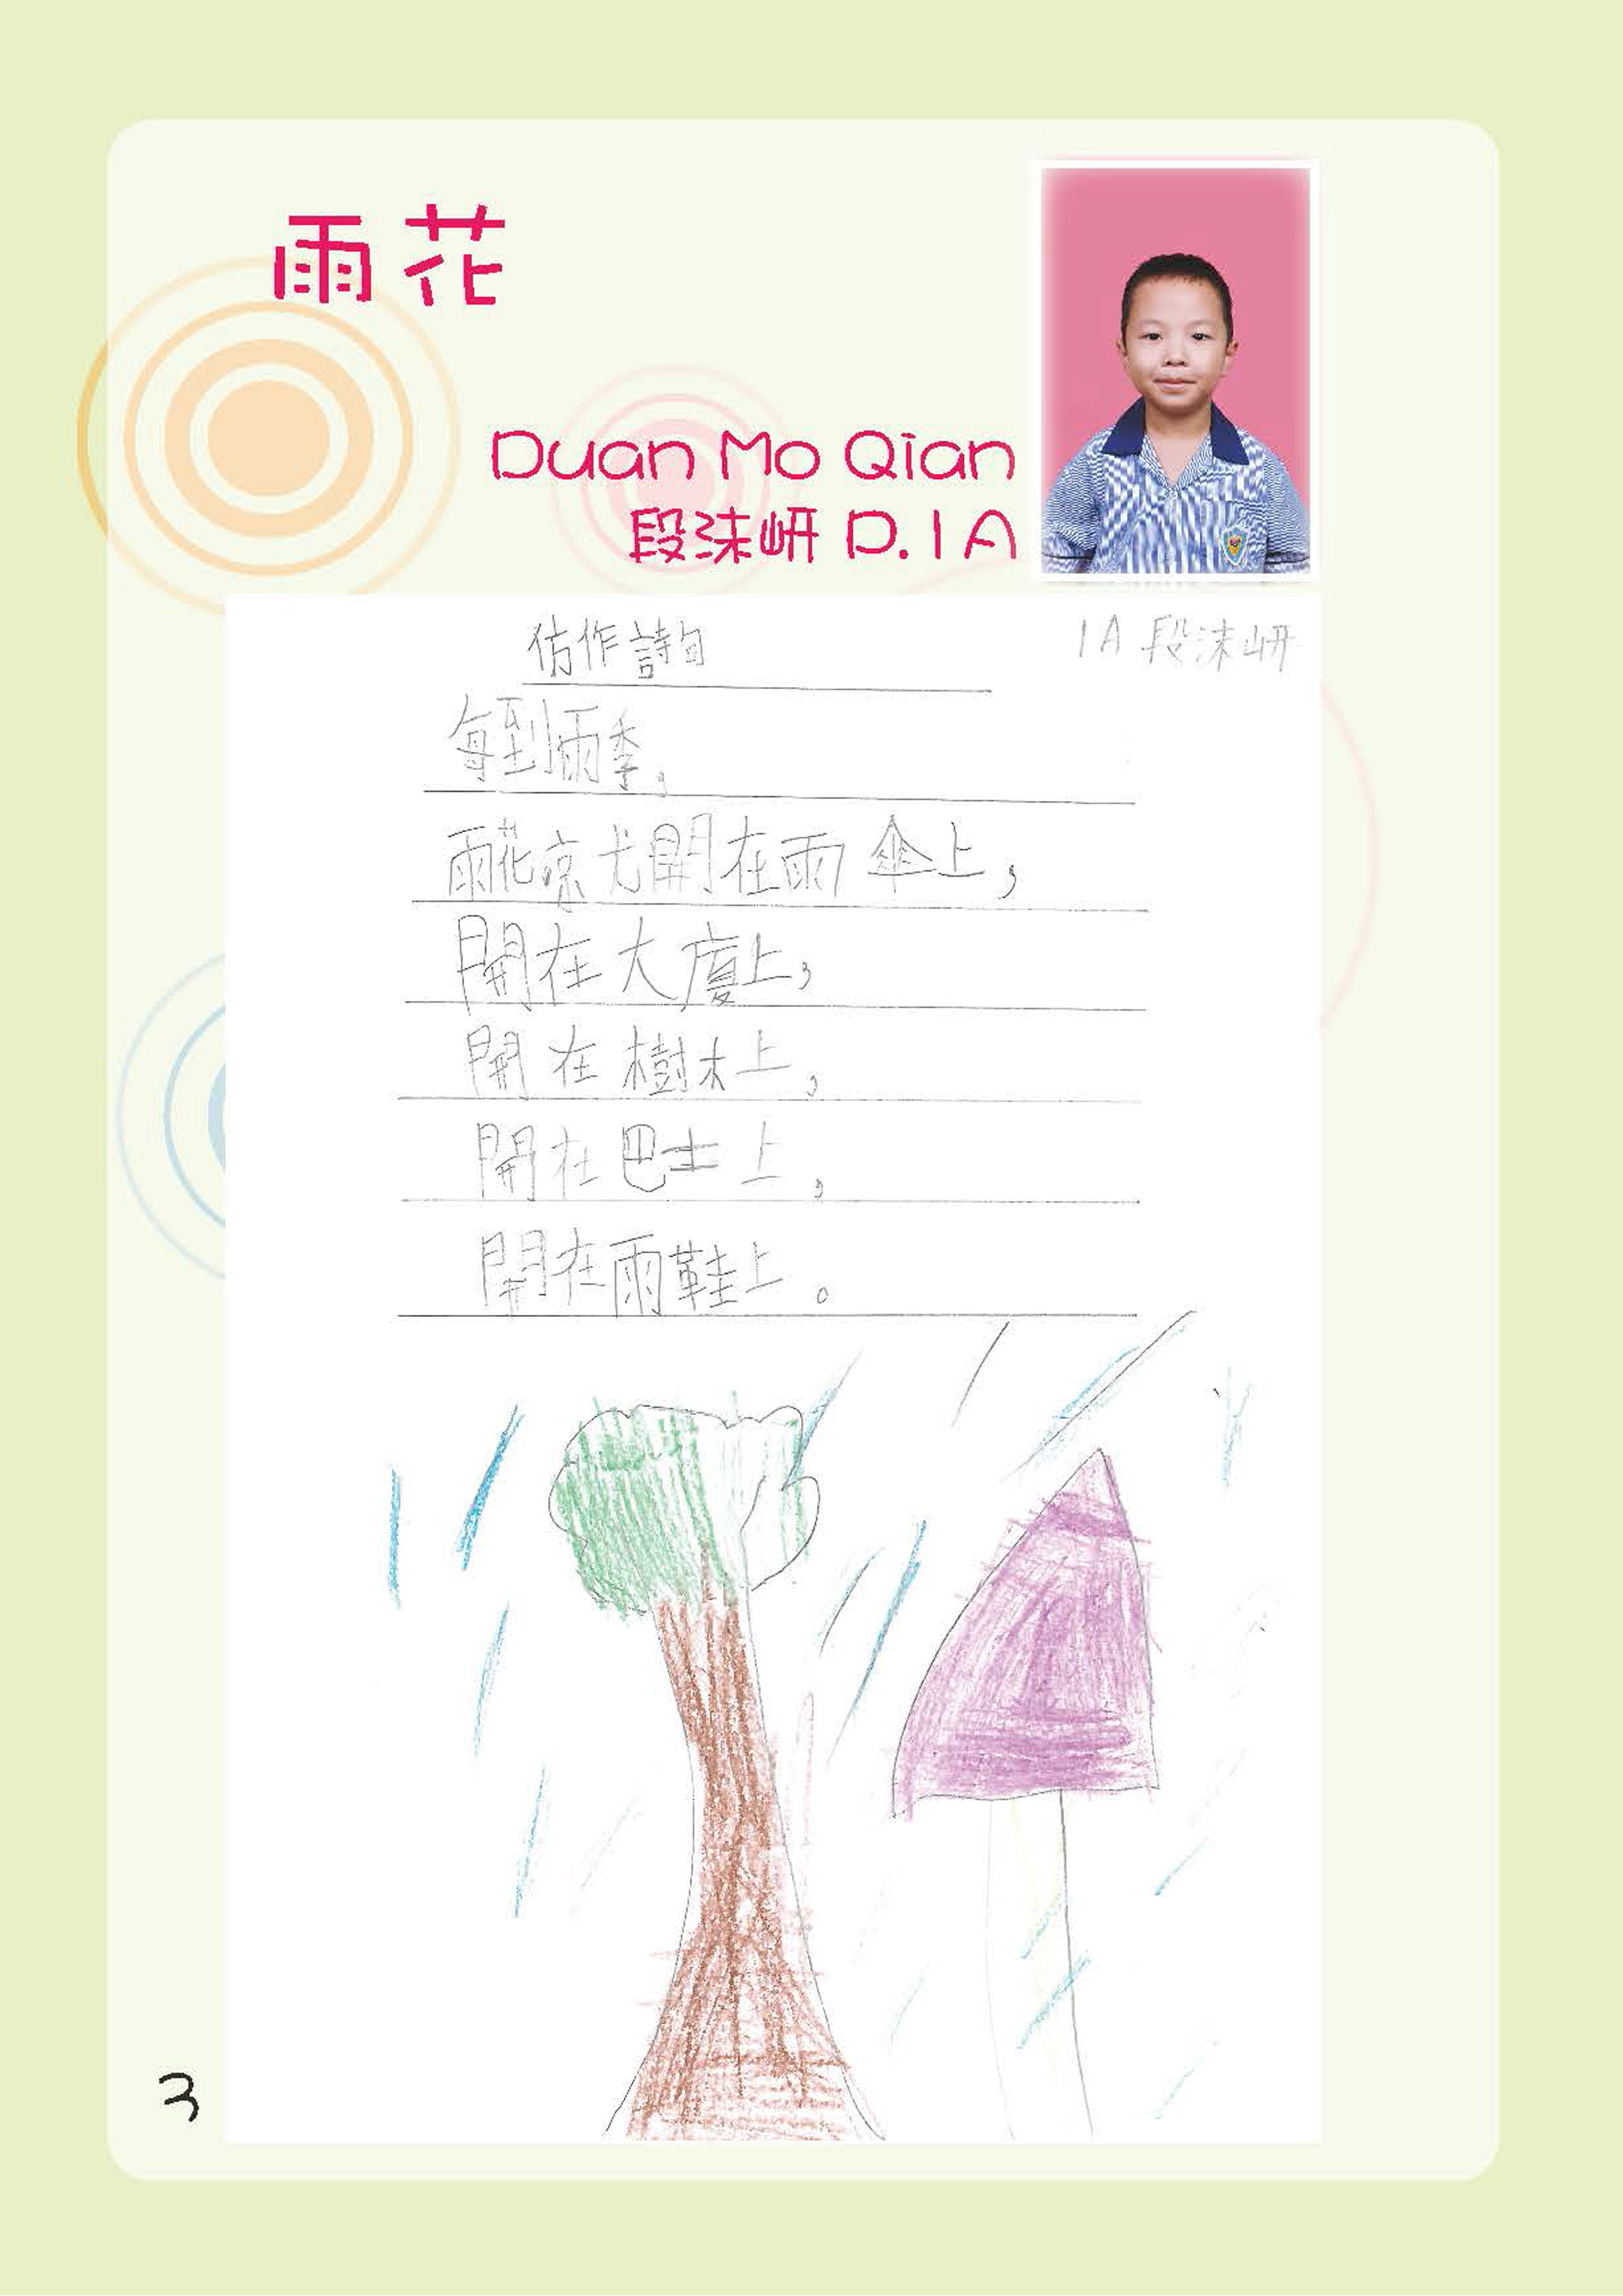 雨花
Duan Mo Qian
段沫岍 D.1A
仿作詩句
1A 段沫岍
每到雨季,
雨花就開在雨傘上,
開在大廈上,
開在樹木上,
開在巴士上,
開在雨鞋上。
3